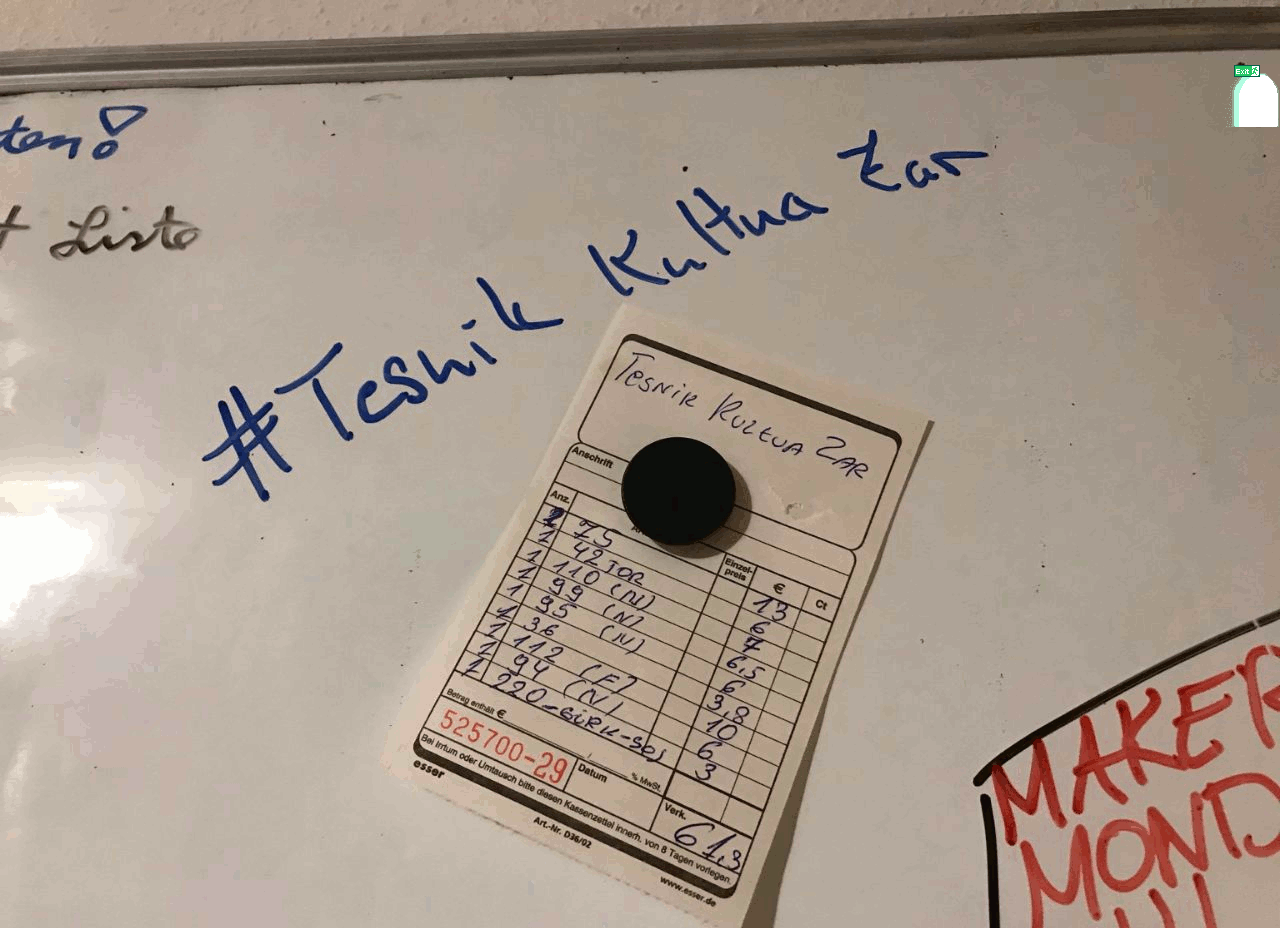 Exit
ten!
t Liste
#Tesnik Kultua Zar
TESNIK KULTUA ZAR
Anschrift
Anz. Einzel-preis € Ct
2 75 13
1 42 TOR 6
1 110 (N) 7
1 99 (N) 6,5
1 95 (N) 6
1 36 3,8
1 112 (F) 10
1 94 (N) 6
1 220-GURK-SOS 3
Betrag enthält € % MwSt. Verk.
525700-29 Datum 61,3
Bei Irrtum oder Umtausch bitte diesen Kassenzettel innerh. von 8 Tagen vorlegen.
esser Art.-Nr. D36/02 www.esser.de
MAKER
MOND